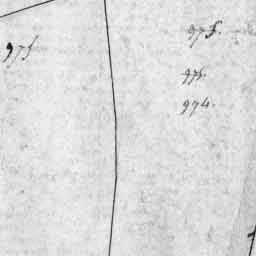 975
975.
975.
974.